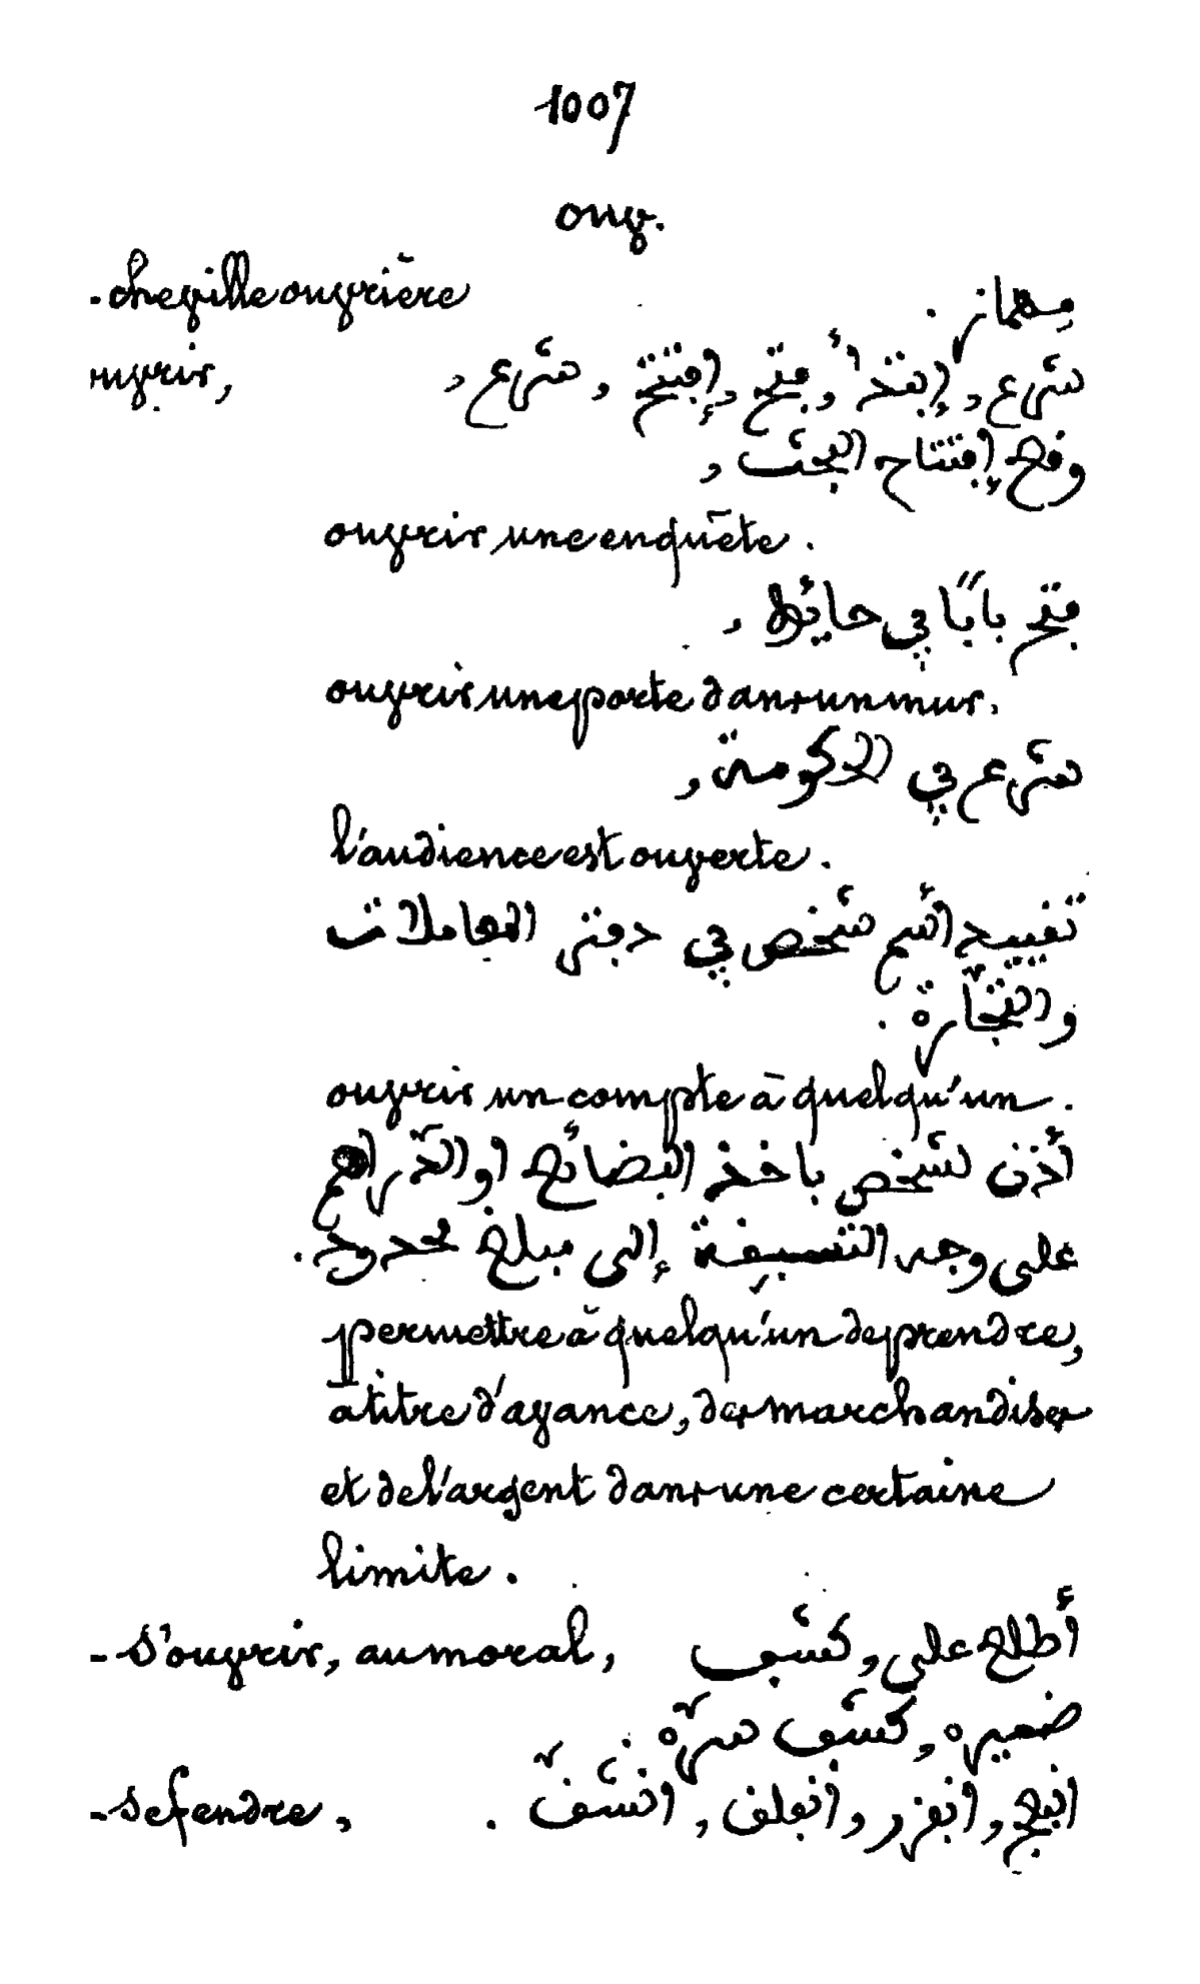 1007
ouv.
- cheville ouvrière مِهماز .
ouvrir, شرع، إبتدأ، فتح، إفتتح، شرع،
وقع إفتتاح البحث،
ouvrir une enquête .
فتح بابًا في حائط،
ouvrir une porte dans un mur.
شرع في الحكومة،
l'audience est ouverte.
تقييد اسم شخص في دفتر المعاملات
والتّجارة .
ouvrir un compte à quelqu'un .
أذن لشخص باخذ البضائع او الدّراهم
على وجه التسبقة إلى مبلغ محدود .
permettre à quelqu'un de prendre,
à titre d'avance, des marchandises
et de l'argent dans une certaine
limite .
- s'ouvrir, au moral, أطلع على، كشف
ضميره، كشف سرّه .
- se fendre, انفجّ، انفزر، وانفلق، انشقّ .